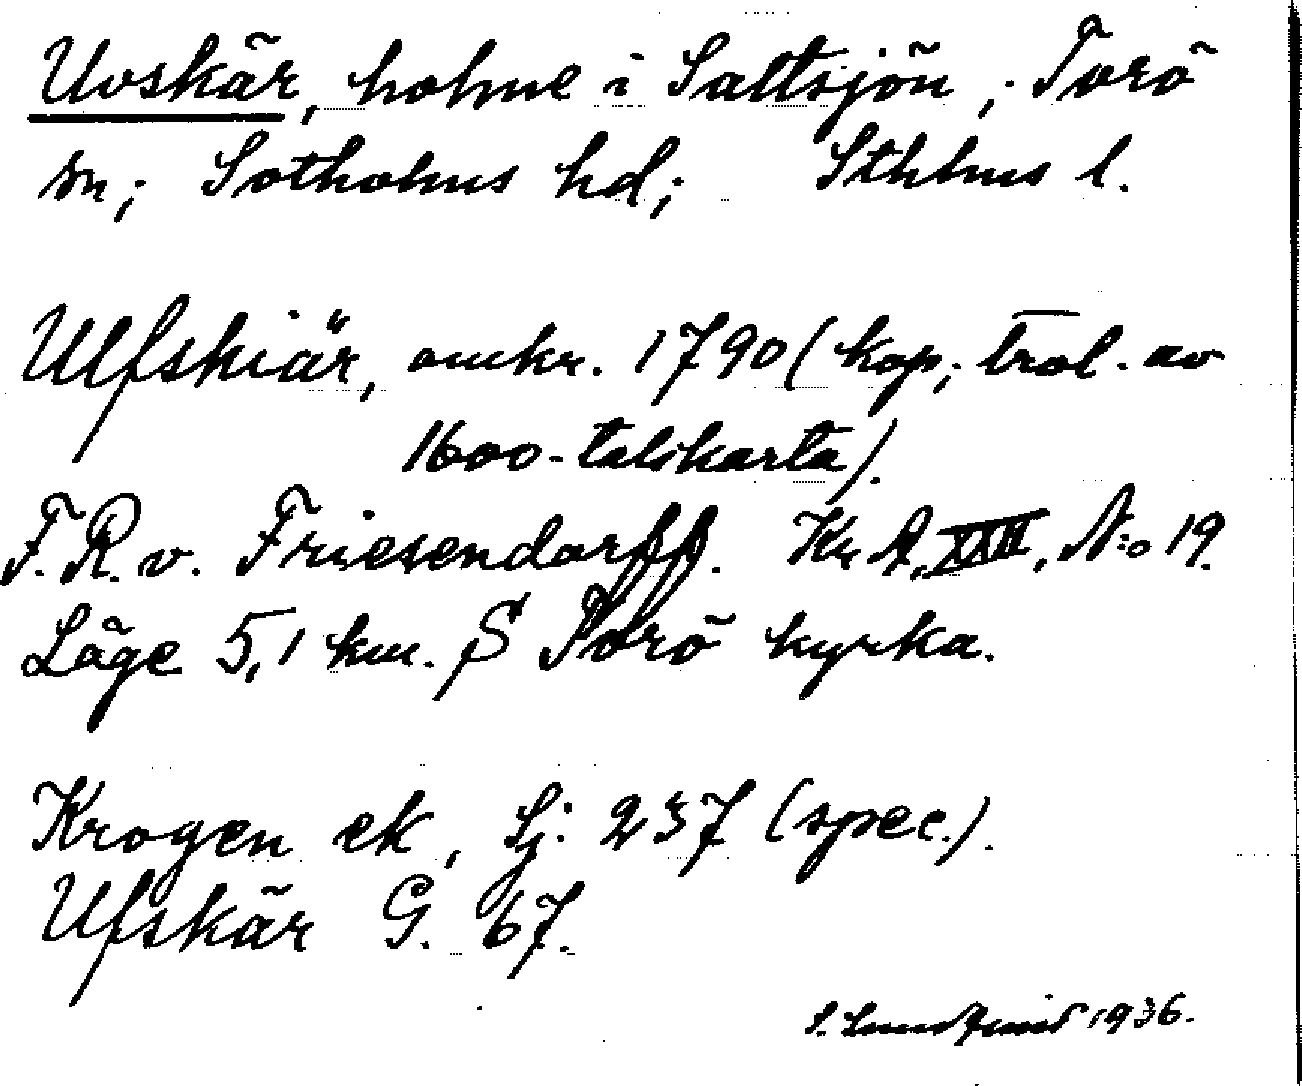 Uvskär, holme i Saltsjön, Torö
sn; Sotholms hd; Sthlms l.
Ulfskiär, omkr. 1790 (kop; trol. av
1600-talskarta).
F. R. v. Friesendorff. Kr A, XXIII, N:o 19.
Läge 5,1 km. S Torö kyrka.
Krogen ek, Lj: 237 (spec.).
Ufskär G. 67.
S. Lundqvist 1936.